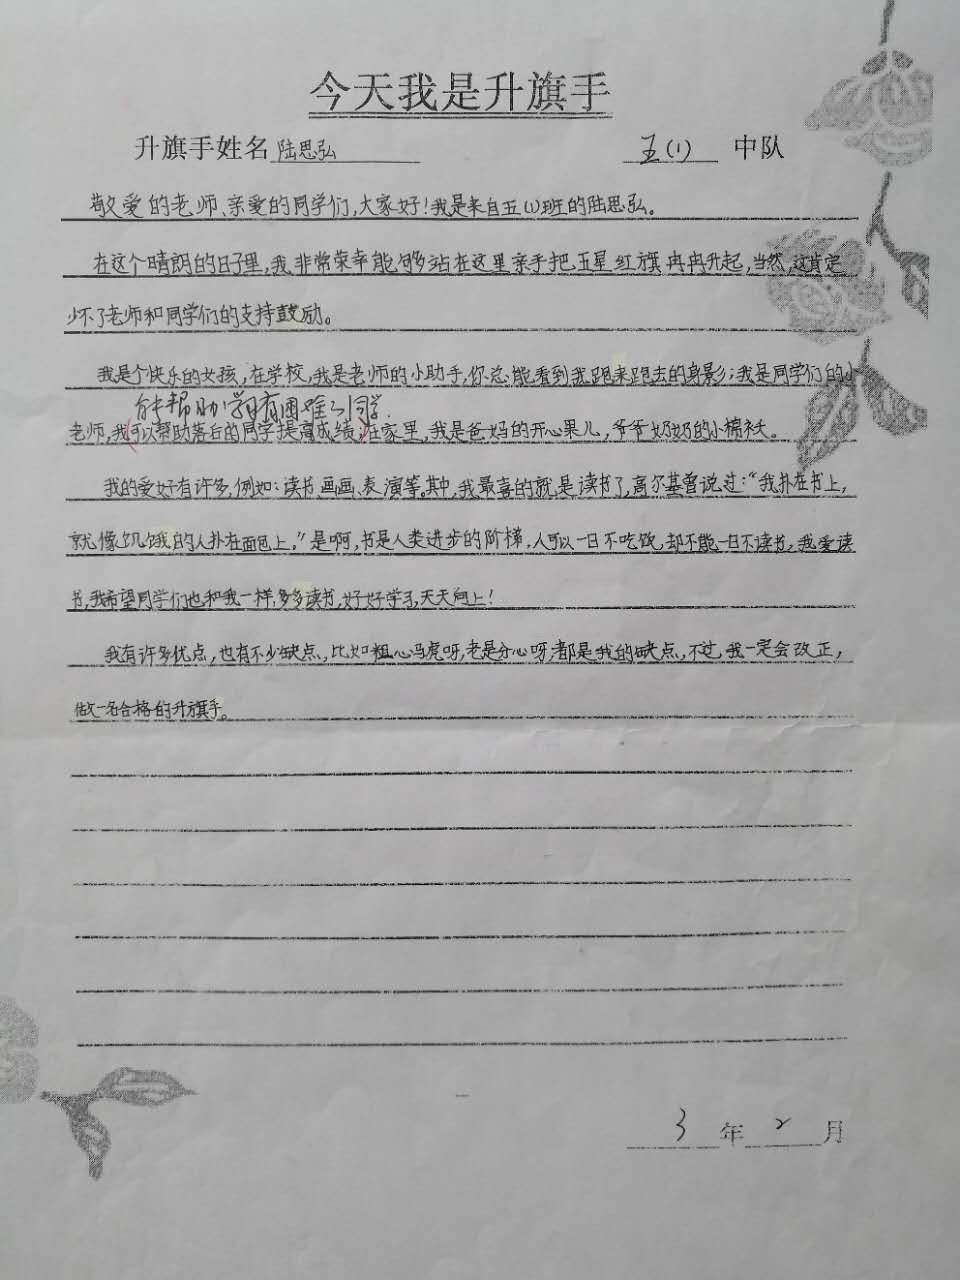 今天我是升旗手
升旗手姓名 陆思弘 五(1) 中队
敬爱的老师、亲爱的同学们,大家好!我是来自五(1)班的陆思弘。
在这个晴朗的日子里,我非常荣幸能够站在这里亲手把五星红旗冉冉升起,当然,这肯定
少不了老师和同学们的支持鼓励。
我是个快乐的女孩,在学校,我是老师的小助手,你总能看到我跑来跑去的身影;我是同学们的小
能帮助学习有困难的同学.
老师,我(可以帮助落后的同学提高成绩;)在家里,我是爸妈的开心果儿,爷爷奶奶的小棉袄。
我的爱好有许多,例如:读书、画画、表演等。其中,我最喜的就是读书了,高尔基曾说过:“我扑在书上,
就像饥饿的人扑在面包上,”是啊,书是人类进步的阶梯,人可以一日不吃饭,却不能一日不读书,我爱读
书,我希望同学们也和我一样,多多读书,好好学习,天天向上!
我有许多优点,也有不少缺点,比如粗心马虎呀,老是分心呀,都是我的缺点,不过,我一定会改正,
做一名合格的升旗手。
3 年 2 月